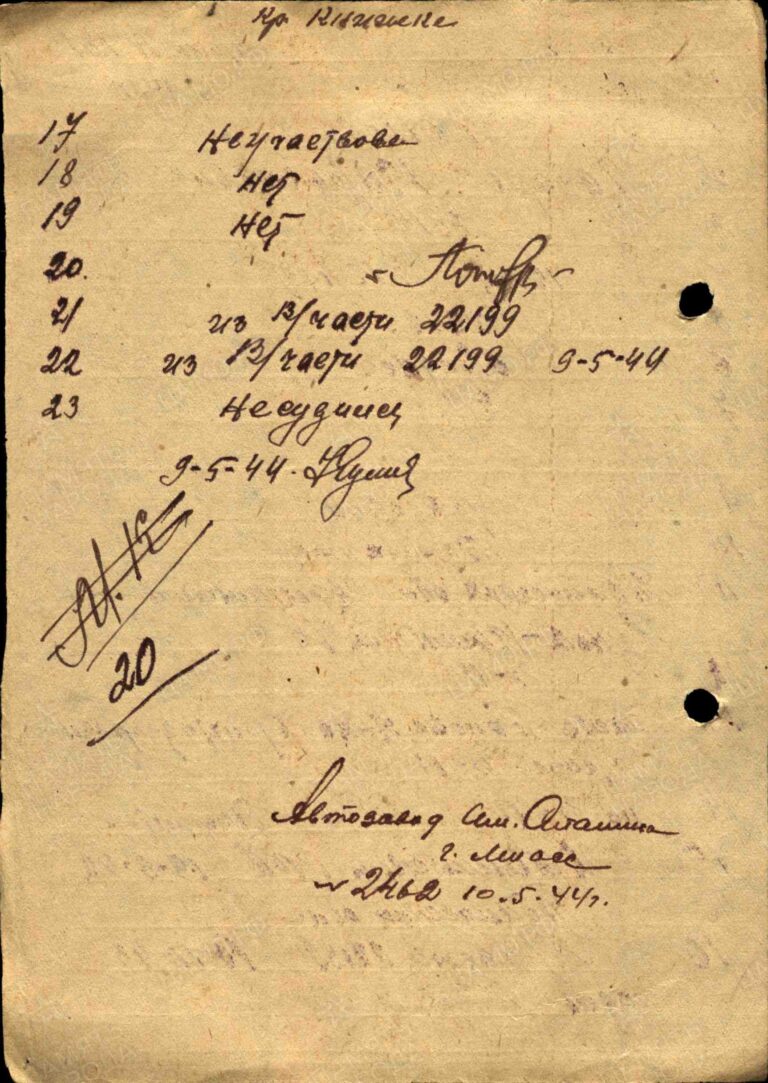 Кр. Книжке
17 Не участвовал
18 Нет
19 Нет
20.
21 из в/части 22199
22 из в/части 22199 9-5-44
23 Не судился
9-5-44.
20
Автозавод Им. Сталина
г. Миасс
2462 10.5.44г.